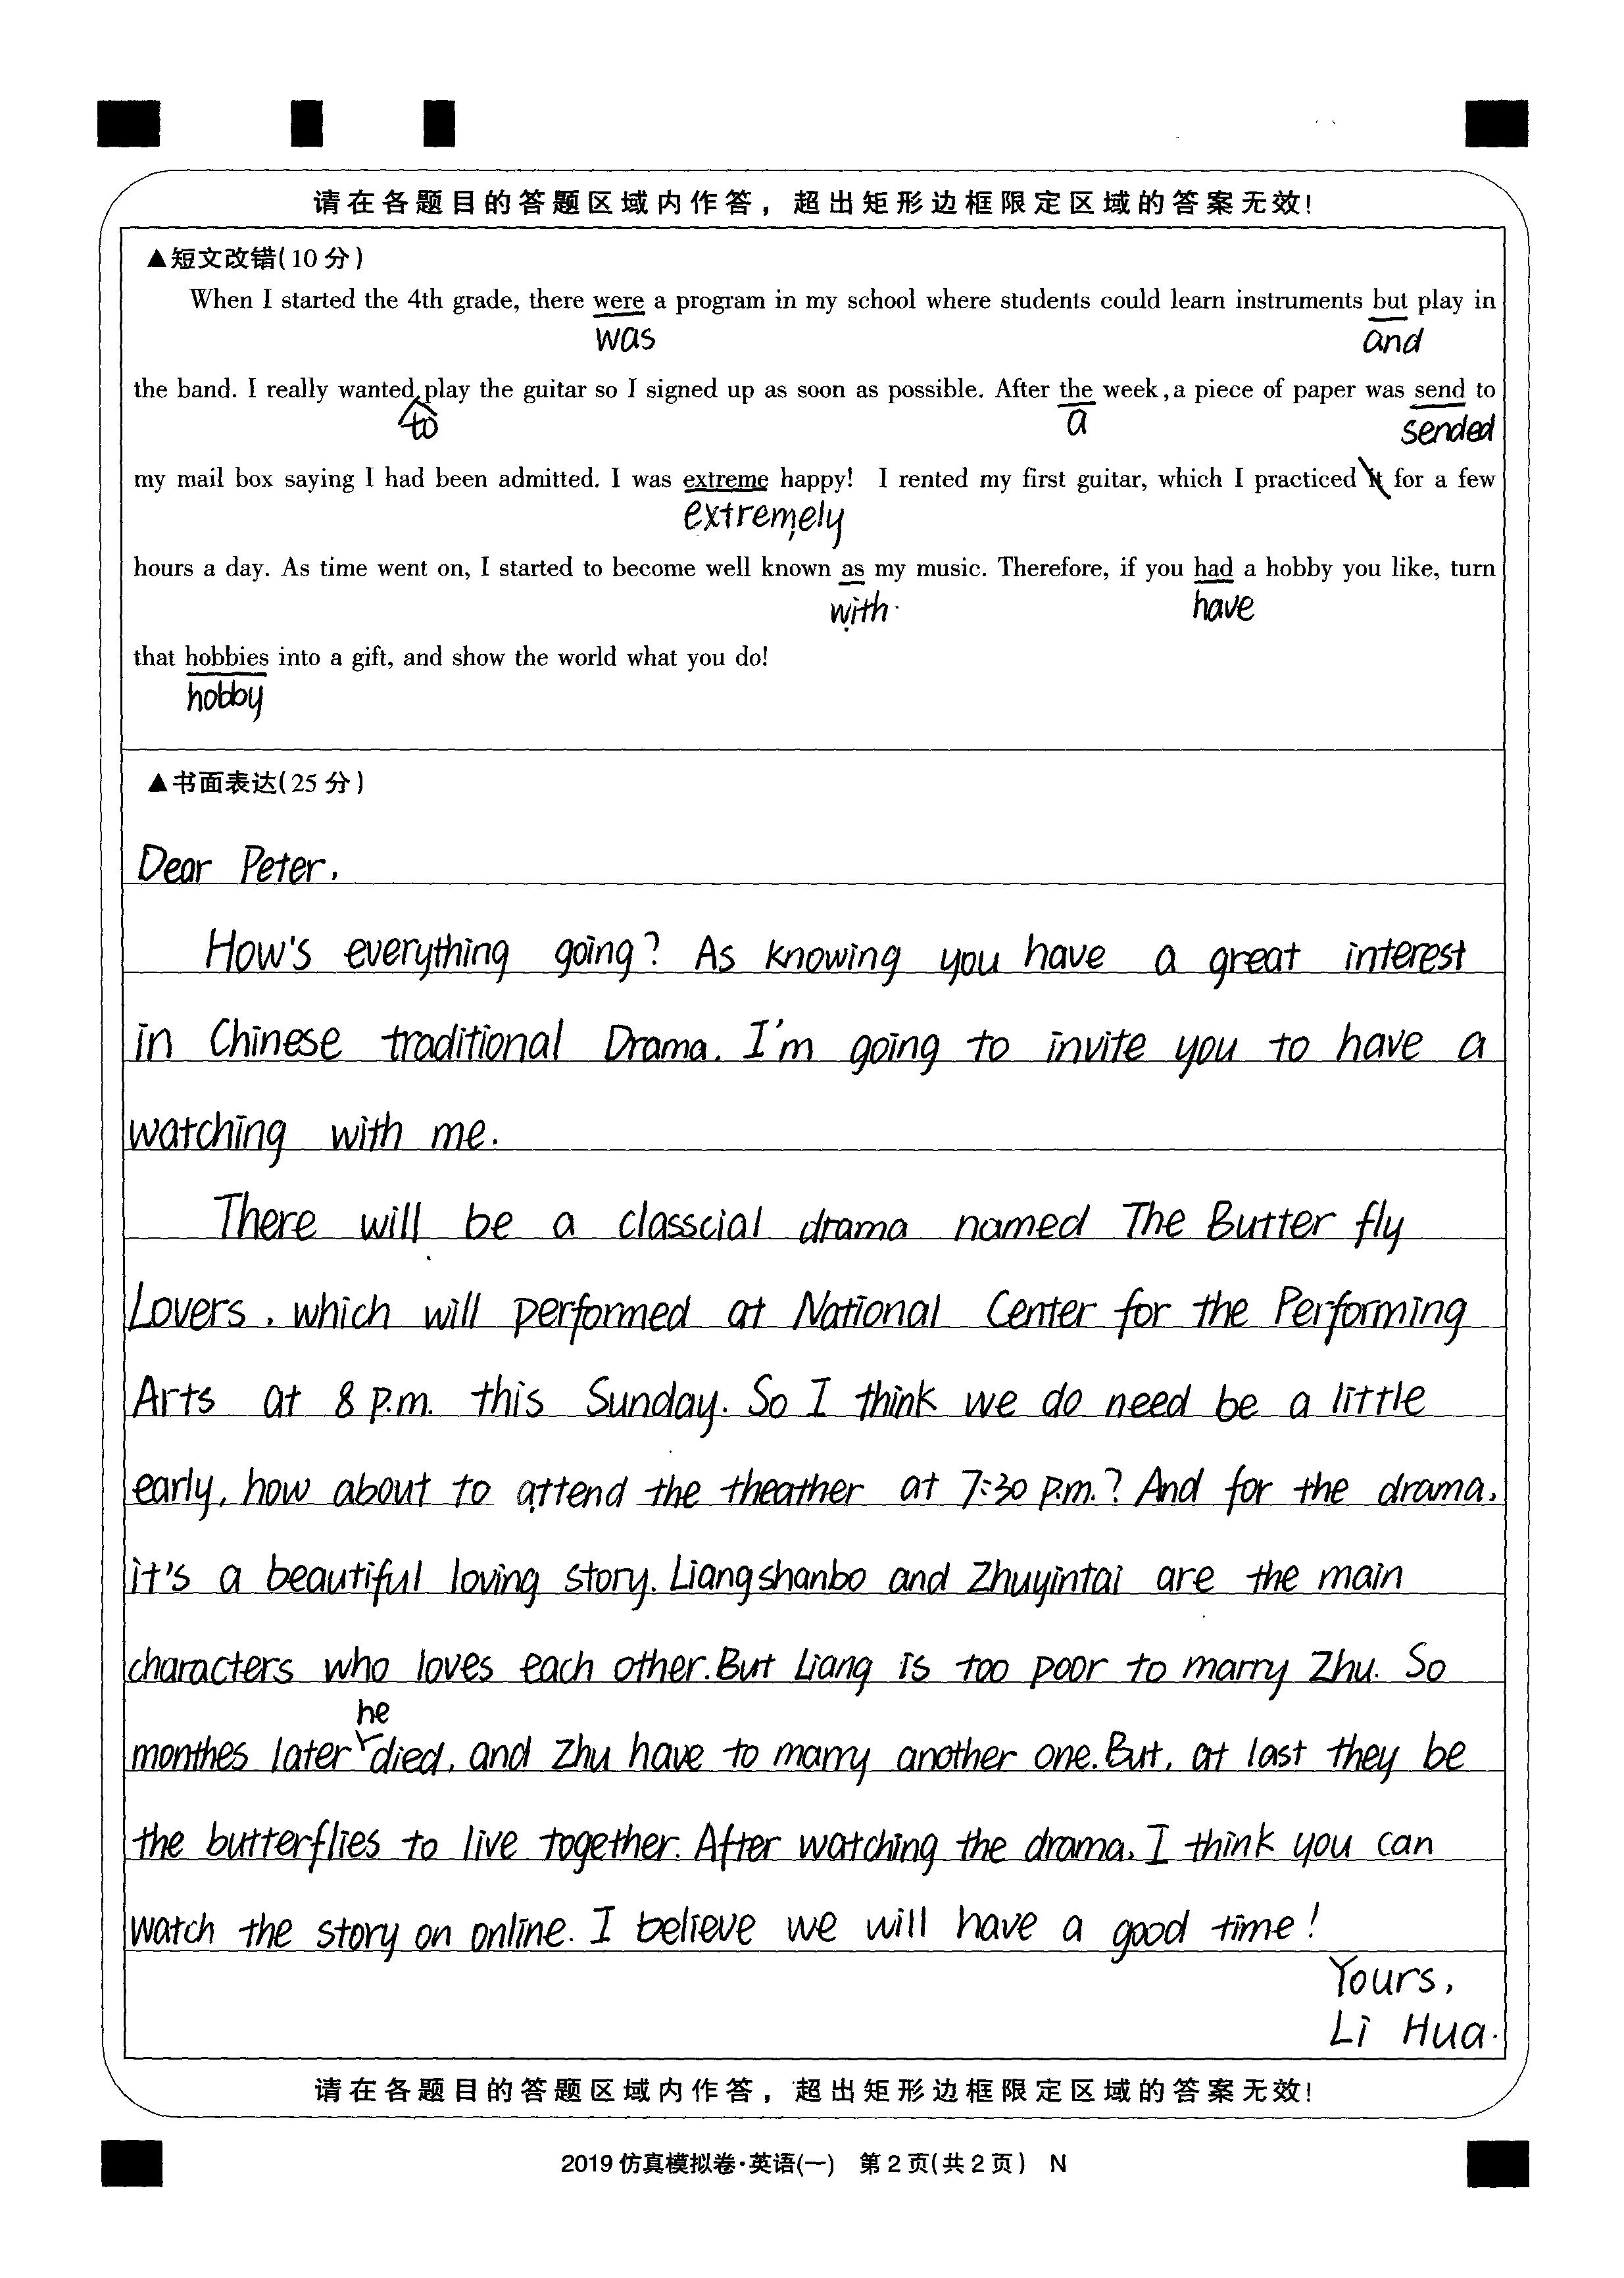 请在各题目的答题区域内作答，超出矩形边框限定区域的答案无效!
▲短文改错(10分)
When I started the 4th grade, there were a program in my school where students could learn instruments but play in
was and
the band. I really wanted play the guitar so I signed up as soon as possible. After the week, a piece of paper was send to
to a sended
my mail box saying I had been admitted. I was extreme happy! I rented my first guitar, which I practiced it for a few
extremely
hours a day. As time went on, I started to become well known as my music. Therefore, if you had a hobby you like, turn
with have
that hobbies into a gift, and show the world what you do!
hobby
▲书面表达(25分)
Dear Peter,
How's everything going? As knowing you have a great interest
in Chinese traditional Drama. I'm going to invite you to have a
watching with me.
There will be a classcial drama named The Butter fly
Lovers, which will performed at National Center for the Performing
Arts at 8 p.m. this Sunday. So I think we do need be a little
early, how about to attend the theather at 7:30 p.m.? And for the drama,
it's a beautiful loving story. Liangshanbo and Zhuyintai are the main
characters who loves each other. But Liang is too poor to marry Zhu. So
he
monthes later died, and Zhu have to marry another one. But, at last they be
the butterflies to live together. After watching the drama, I think you can
watch the story on online. I believe we will have a good time!
Yours,
Li Hua.
请在各题目的答题区域内作答，超出矩形边框限定区域的答案无效!
2019仿真模拟卷·英语(一) 第2页(共2页) N